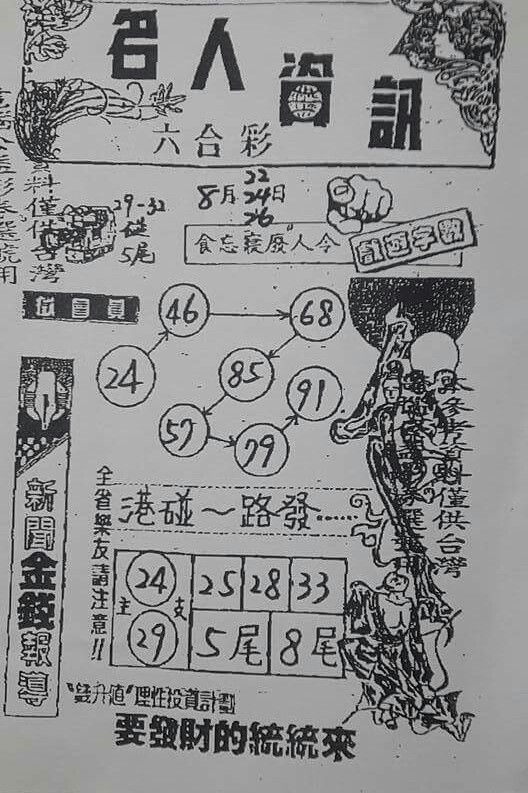 名人資訊
六合彩
8月22 24 26日
29-32
碰
5尾
食忘寢廢"人令
數字遊戲
會員
46 68
24 85 91
57 79
新聞金鈸報導
全省樂友請注意!!
港碰~一路發……
24 25 28 33
主 支
29 5尾 8尾
本參考資料僅供台灣
資料僅供台灣
"升值"理性投資計劃
要發財的統統來